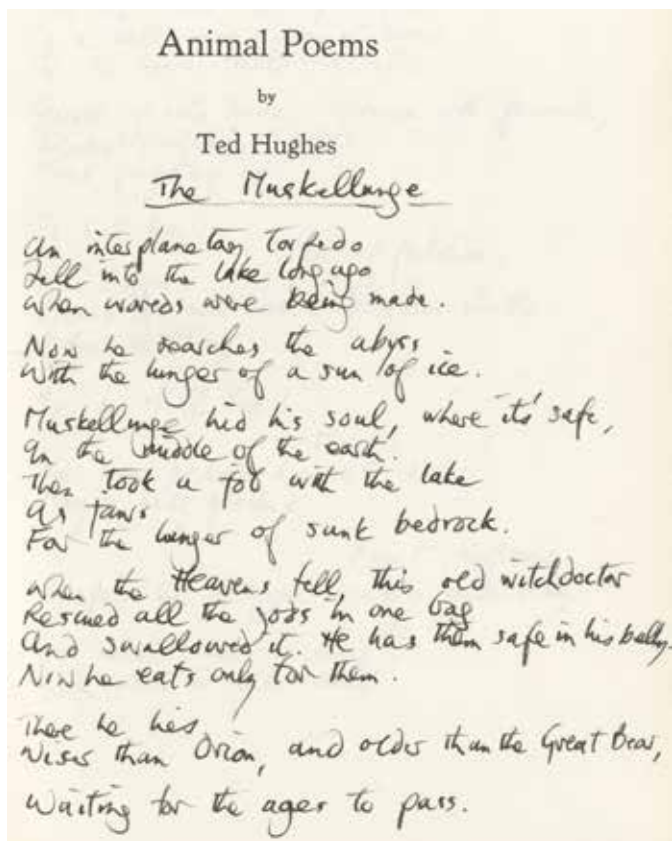 Animal Poems
by
Ted Hughes
The Muskellunge
An interplanetary torpedo
Fell into the lake long ago
When words were being made.
Now he searches the abyss
With the hunger of a sun of ice.
Muskellunge hid his soul, where it's safe,
In the middle of the earth.
Then took a job with the lake
As jaws
For the hunger of sunk bedrock.
When the Heavens fell, this old witchdoctor
Rescued all the gods in one bag
And swallowed it. He has them safe in his belly.
Now he eats only for them.
There he lies
Wiser than Orion, and older than the Great Bear,
Waiting for the ages to pass.